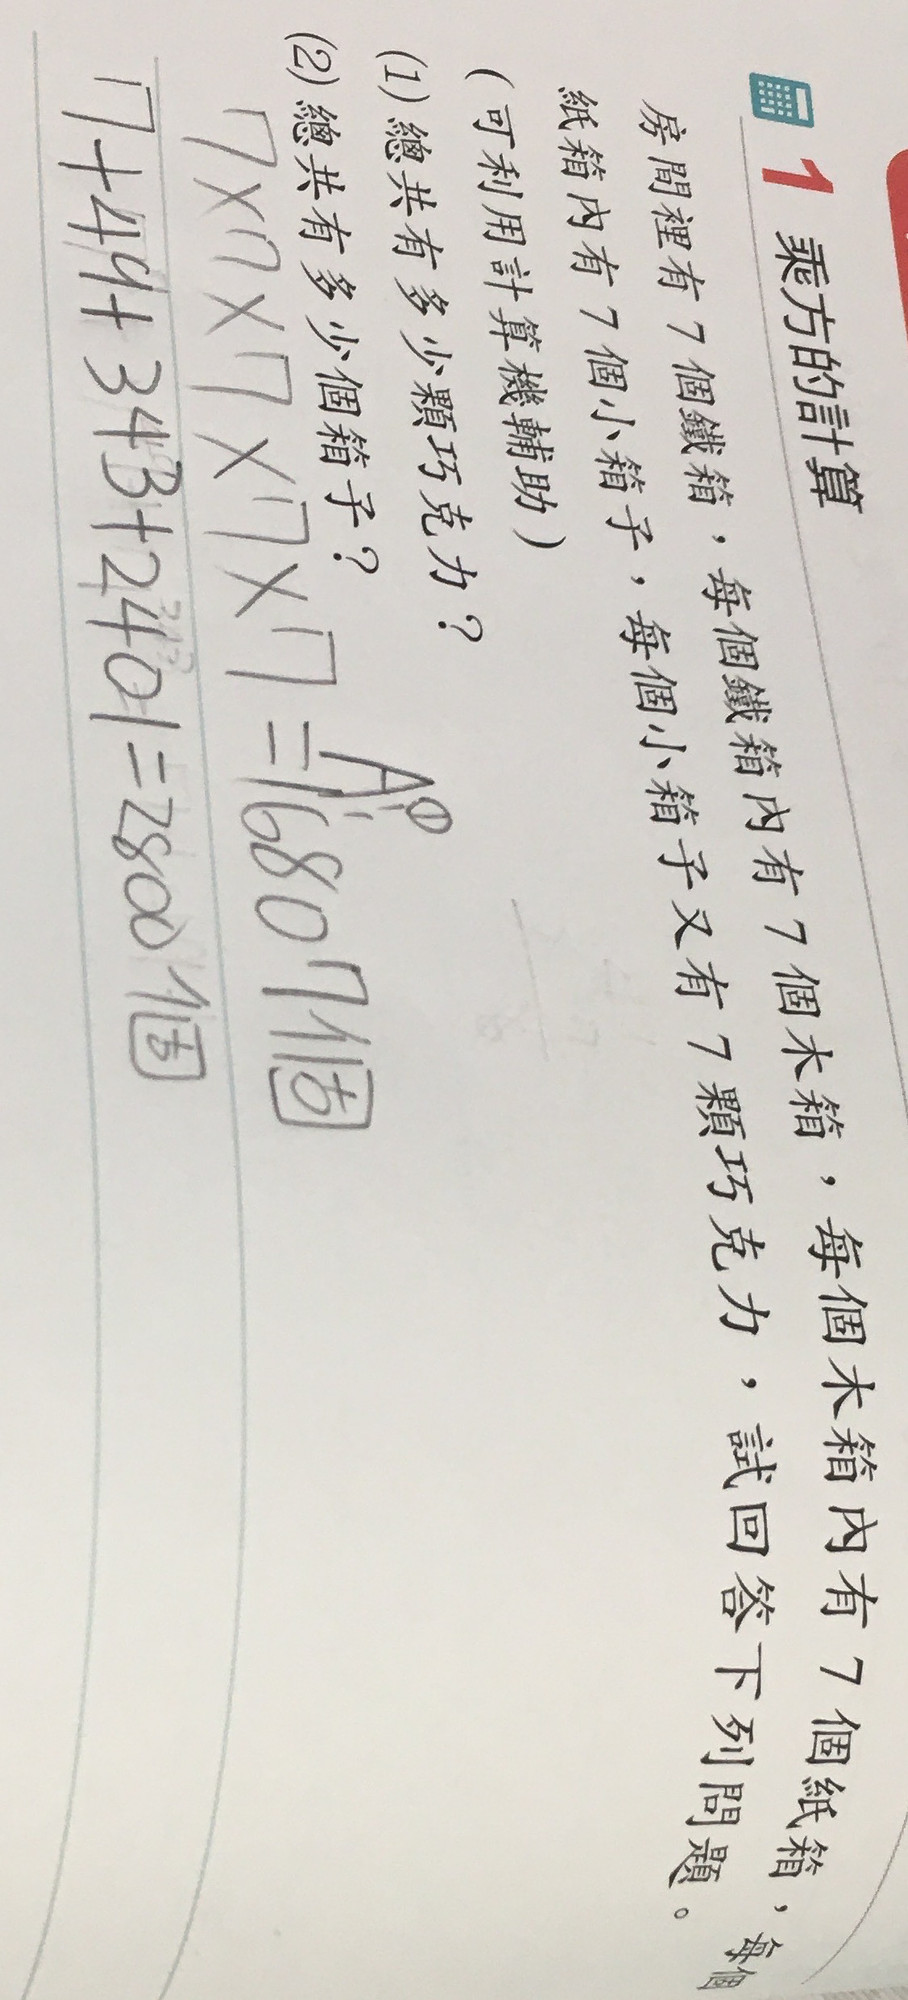 1 乘方的計算
房間裡有7個鐵箱，每個鐵箱內有7個木箱，每個木箱內有7個紙箱，每個
紙箱內有7個小箱子，每個小箱子又有7顆巧克力，試回答下列問題。
（可利用計算機輔助）
(1) 總共有多少顆巧克力？
(2) 總共有多少個箱子？
7×7×7×7×7=16807個
7+49+343+2401=2800個